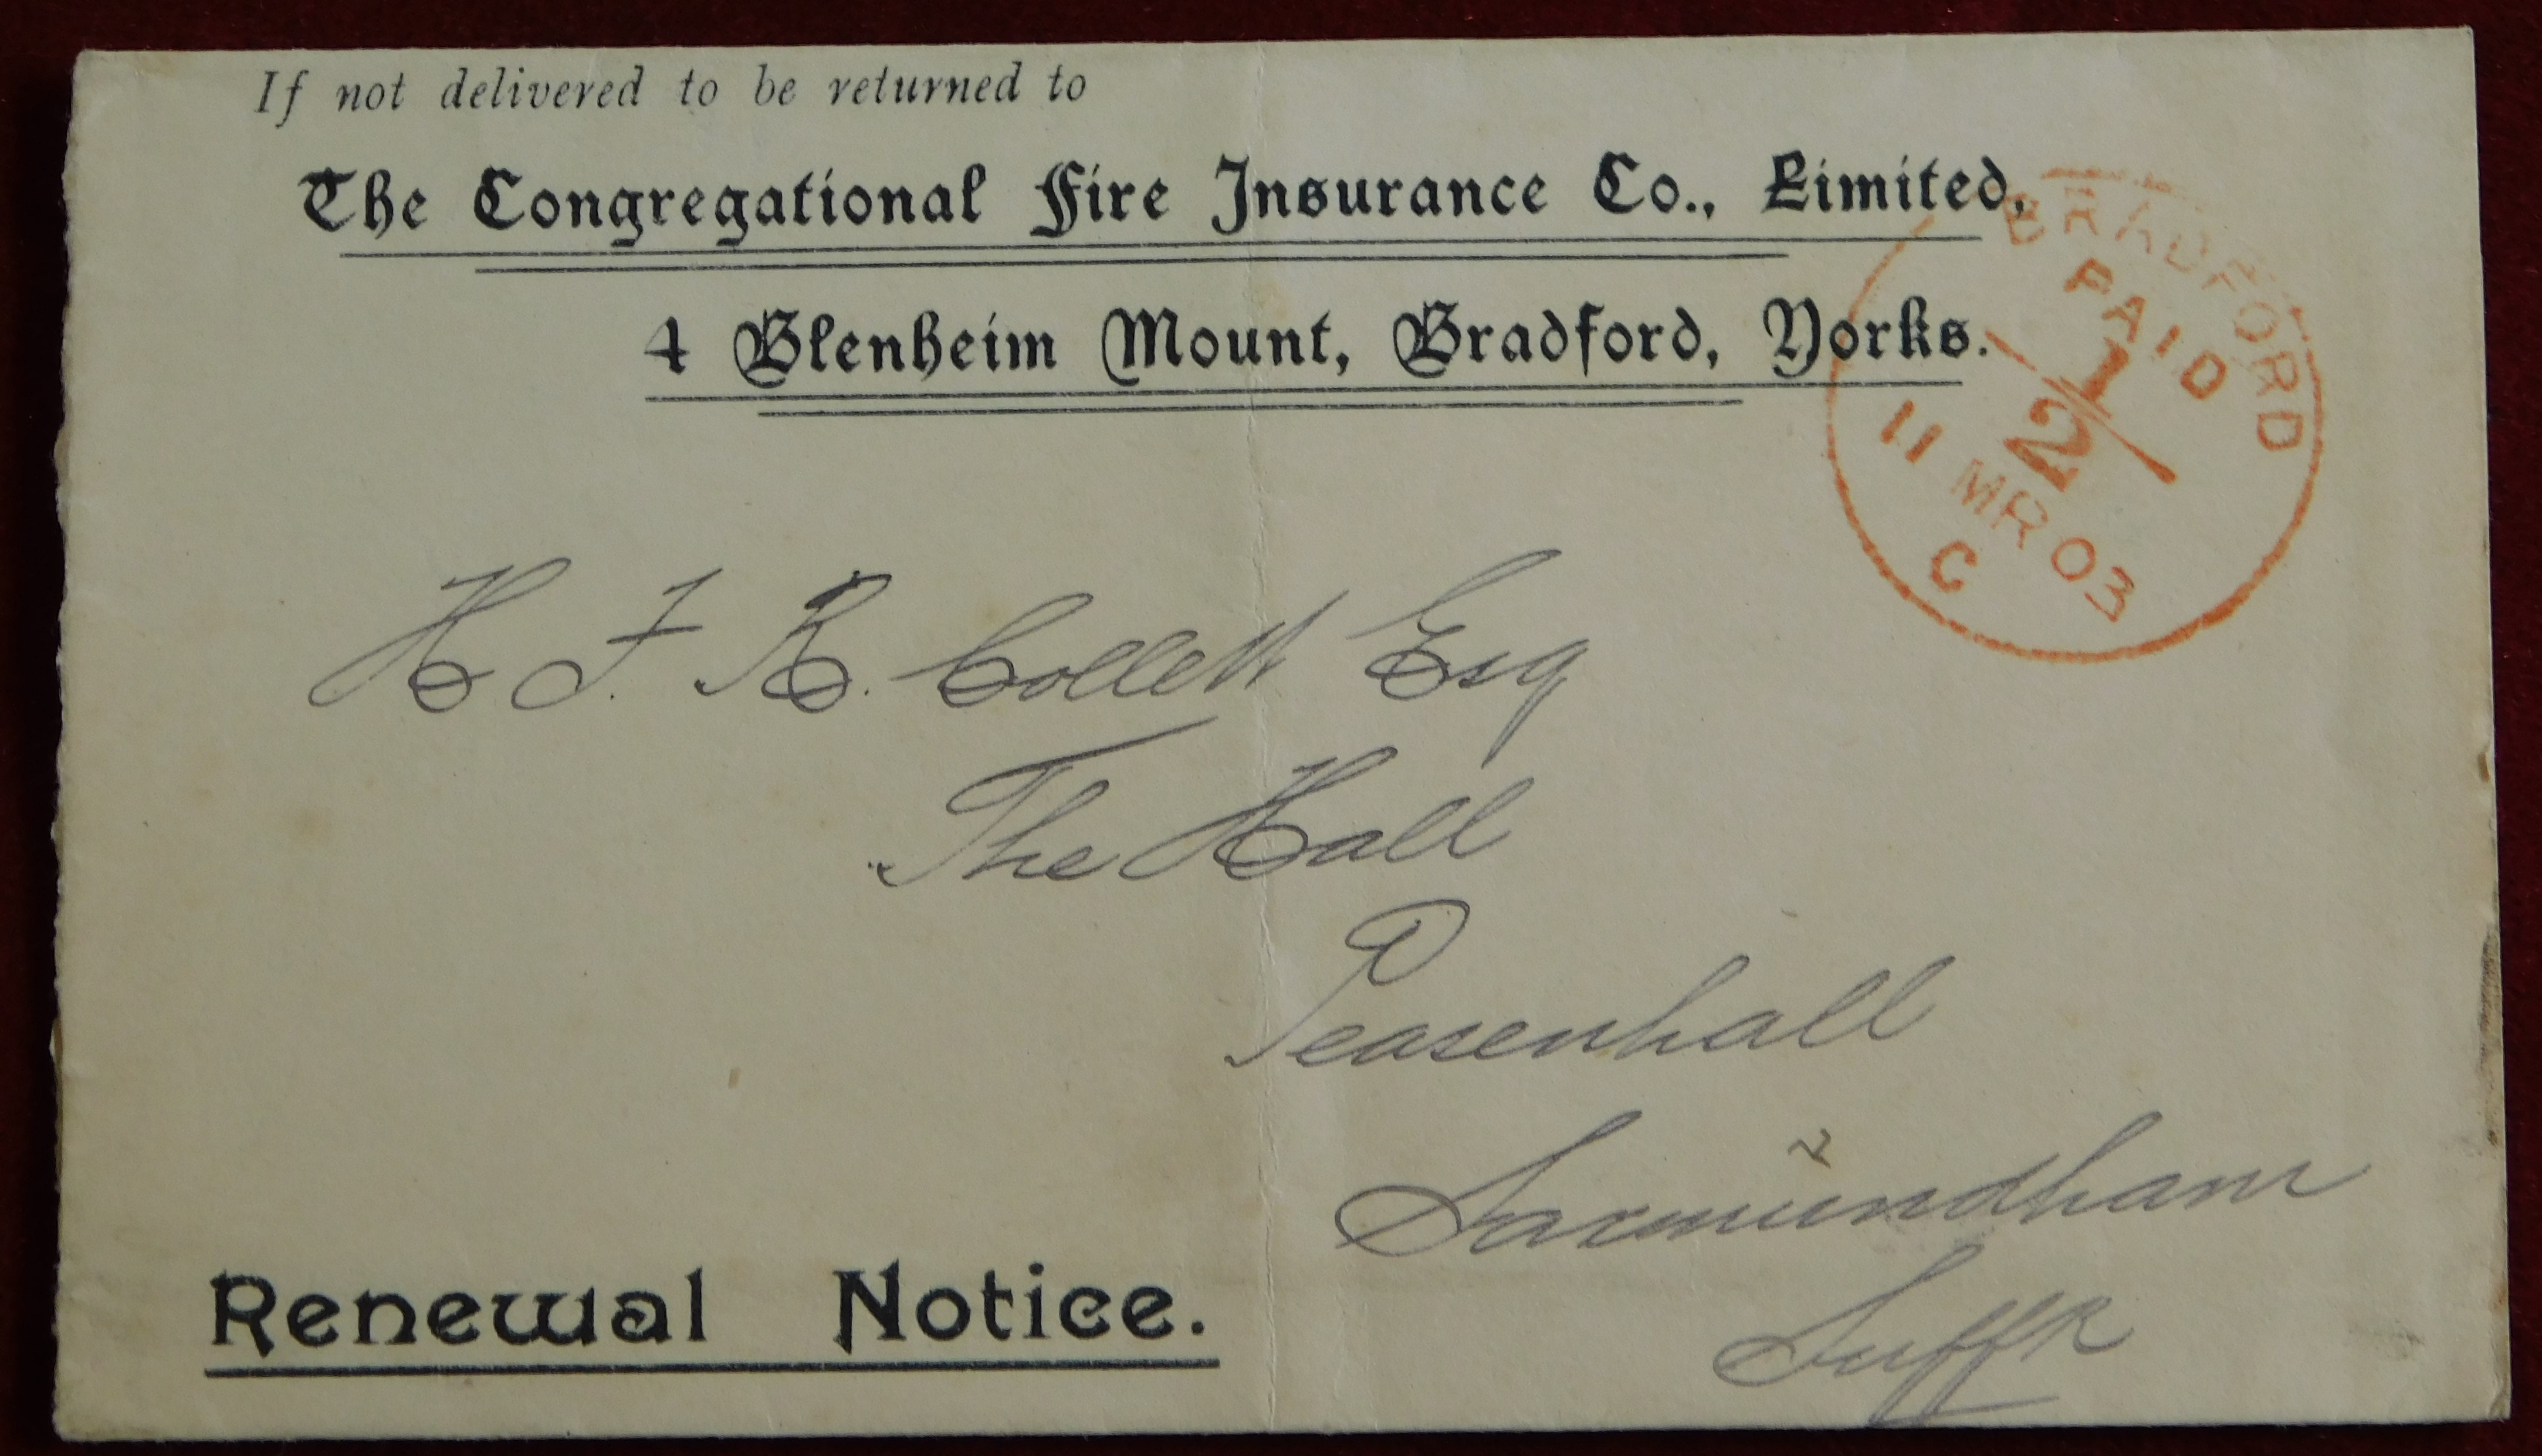 If not delivered to be returned to
The Congregational Fire Insurance Co., Limited,
4 Blenheim Mount, Bradford, Yorks.
BRADFORD
PAID
1/2
11 MR 03
C
H. F. R. Collett Esq
The Hall
Peasenhall
Saxmundham
Suffk
Renewal Notice.